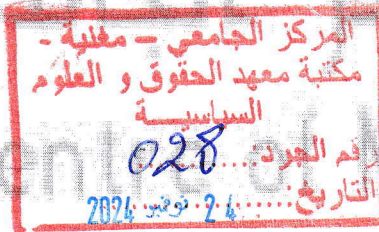 المركز الجامعي - مغنية -
مكتبة معهد الحقوق و العلوم
السياسيـــة
رقم الجرد:.....028
التاريخ:.....2 4 نوفمبر 2024